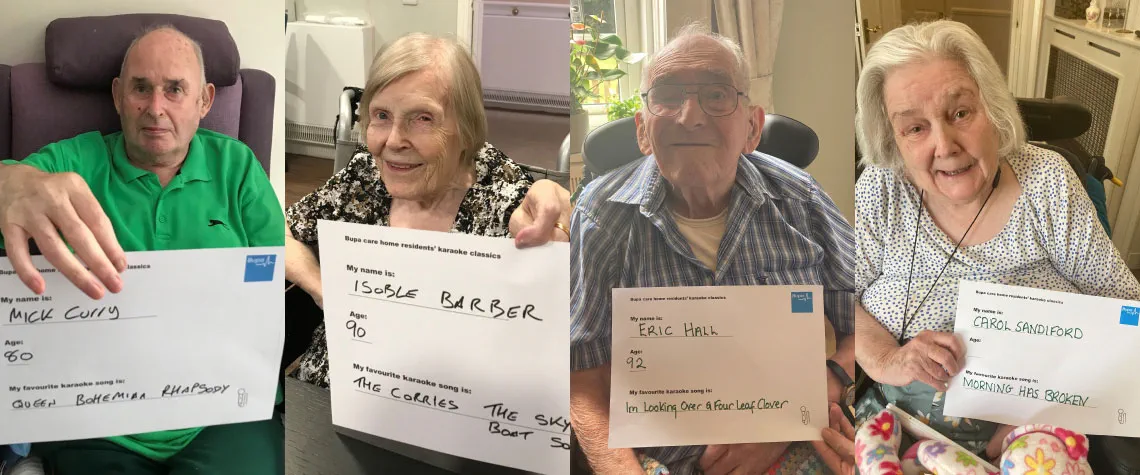 classics
Bupa
My name is:
MICK CURRY
Age:
60
My favourite karaoke song is:
QUEEN BOHEMIAN RHAPSODY
Bupa care home residents' karaoke classics
My name is:
ISOBLE BARBER
Age:
90
My favourite karaoke song is:
THE CORRIES THE SKY
BOAT SO
Bupa care home residents' karaoke classics
Bupa
My name is:
ERIC HALL
Age:
92
My favourite karaoke song is:
Im Looking Over a Four Leaf Clover
Bupa care home residents' karaoke classics
Bupa
My name is:
CAROL SANDIFORD
Age:
My favourite karaoke song is:
MORNING HAS BROKEN